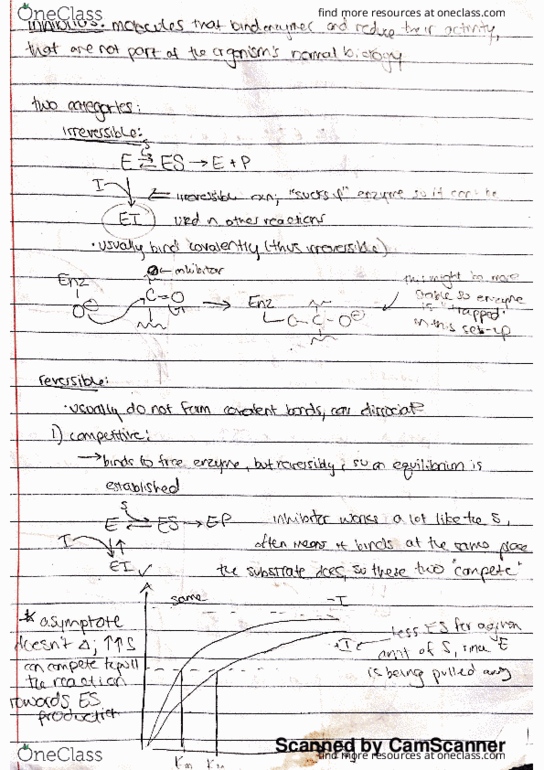 OneClass
find more resources at oneclass.com
inhibitors: molecules that bind enzymes and reduce their activity,
that are not part of the organism's normal biology
two categories:
irreversible:
S
E ⇌ ES → E + P
I
⇐ irreversible rxn; "sucks up" enzyme so it can't be
EI used in other reactions
• usually bind covalently (thus irreversible)
← inhibitor
Enz C=O → Enz
O⊖ O-C-O⊖
this might be more
stable so enzyme
is "trapped"
in this set-up
reversible:
• usually do not form covalent bonds, can dissociate
1) competitive:
→ binds to free enzyme, but reversibly; so an equilibrium is
established
S
E ⇌ ES → EP inhibitor works a lot like the S,
I often means it binds at the same place
EI ✓ the substrate does, so these two "compete"
same -I
* asymptote
doesn't Δ; ↑↑S
can compete to pull
the reaction
towards ES
production
+I ← less ES for a given
amt of S, since E
is being pulled away
Km Km
Scanned by CamScanner
OneClass
find more resources at oneclass.com